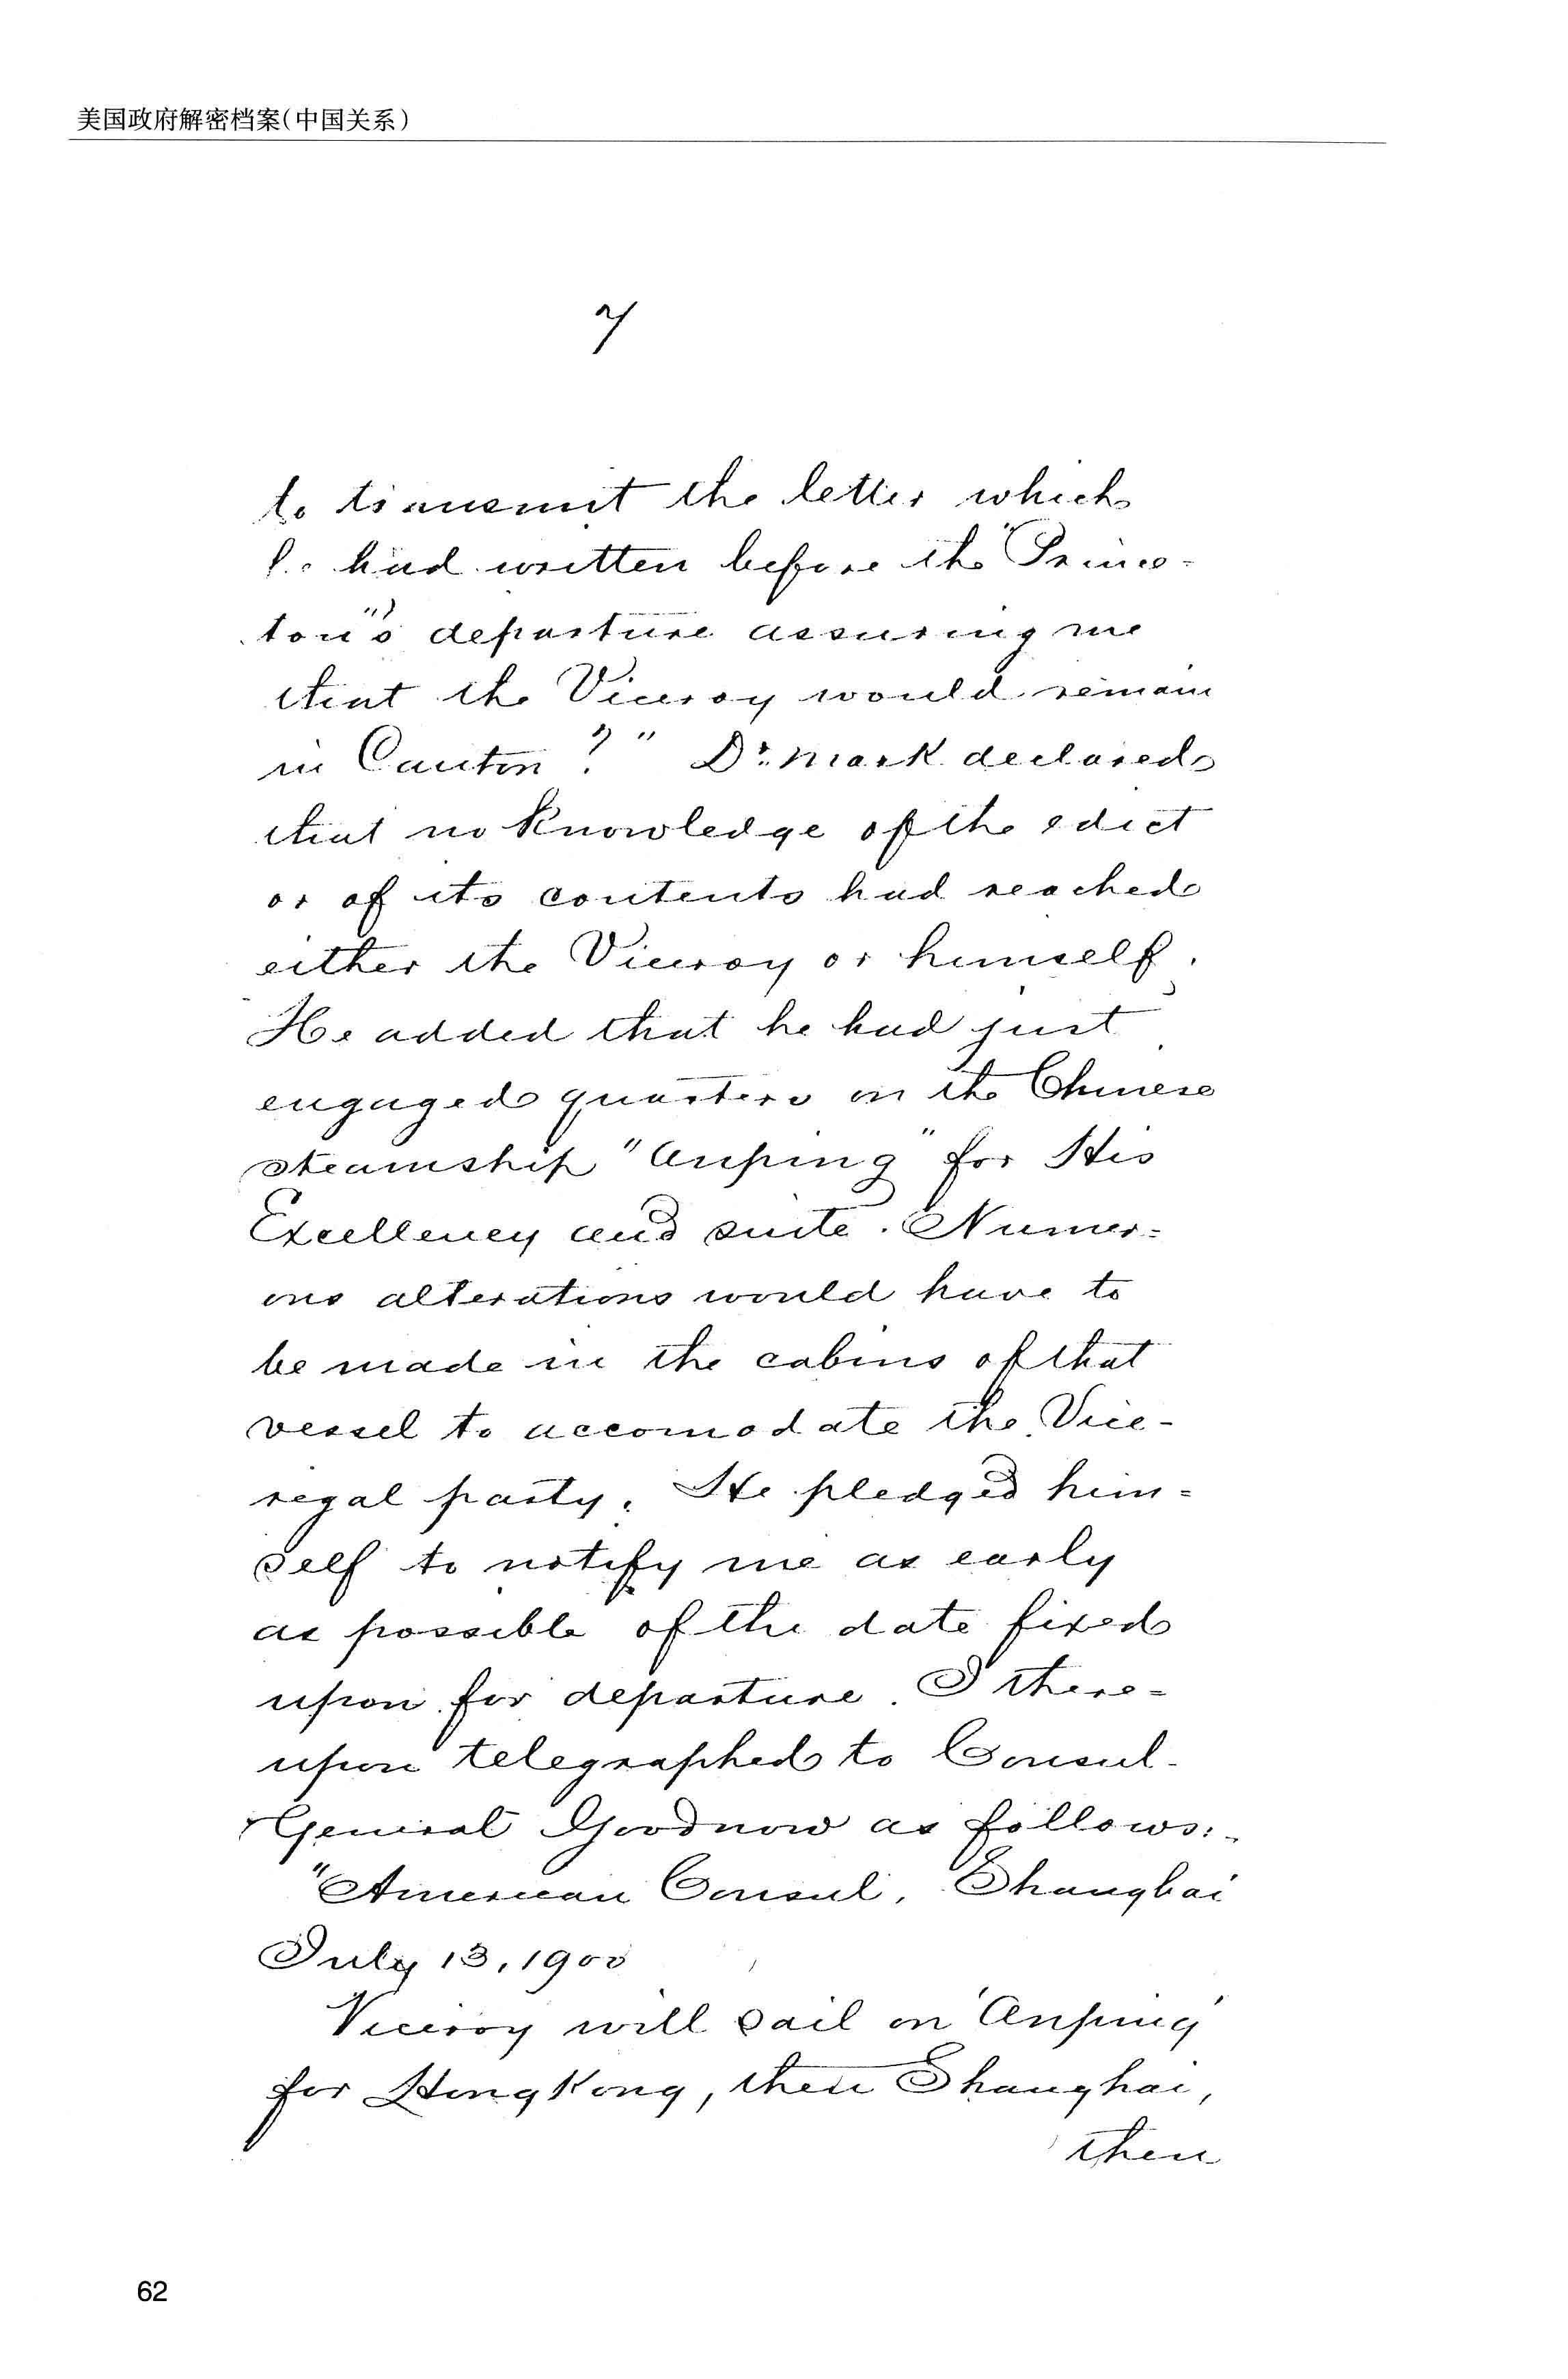 美国政府解密档案(中国关系)
7
to transmit the letter which
he had written before the "Prince-
ton's" departure assuring me
that the Viceroy would remain
in Canton?" Dr. Mark declared
that no knowledge of the edict
or of its contents had reached
either the Viceroy or himself.
He added that he had just
engaged quarters on the Chinese
steamship "Anping" for His
Excellency and suite. Numer=
ous alterations would have to
be made in the cabins of that
vessel to accomodate the Vice-
regal party. He pledged him=
self to notify me as early
as possible of the date fixed
upon for departure. I there=
upon telegraphed to Consul-
General Goodnow as follows:-
"American Consul, Shanghai
July 13, 1900
Viceroy will sail on 'Anping'
for Hong Kong, then Shanghai,
then
62